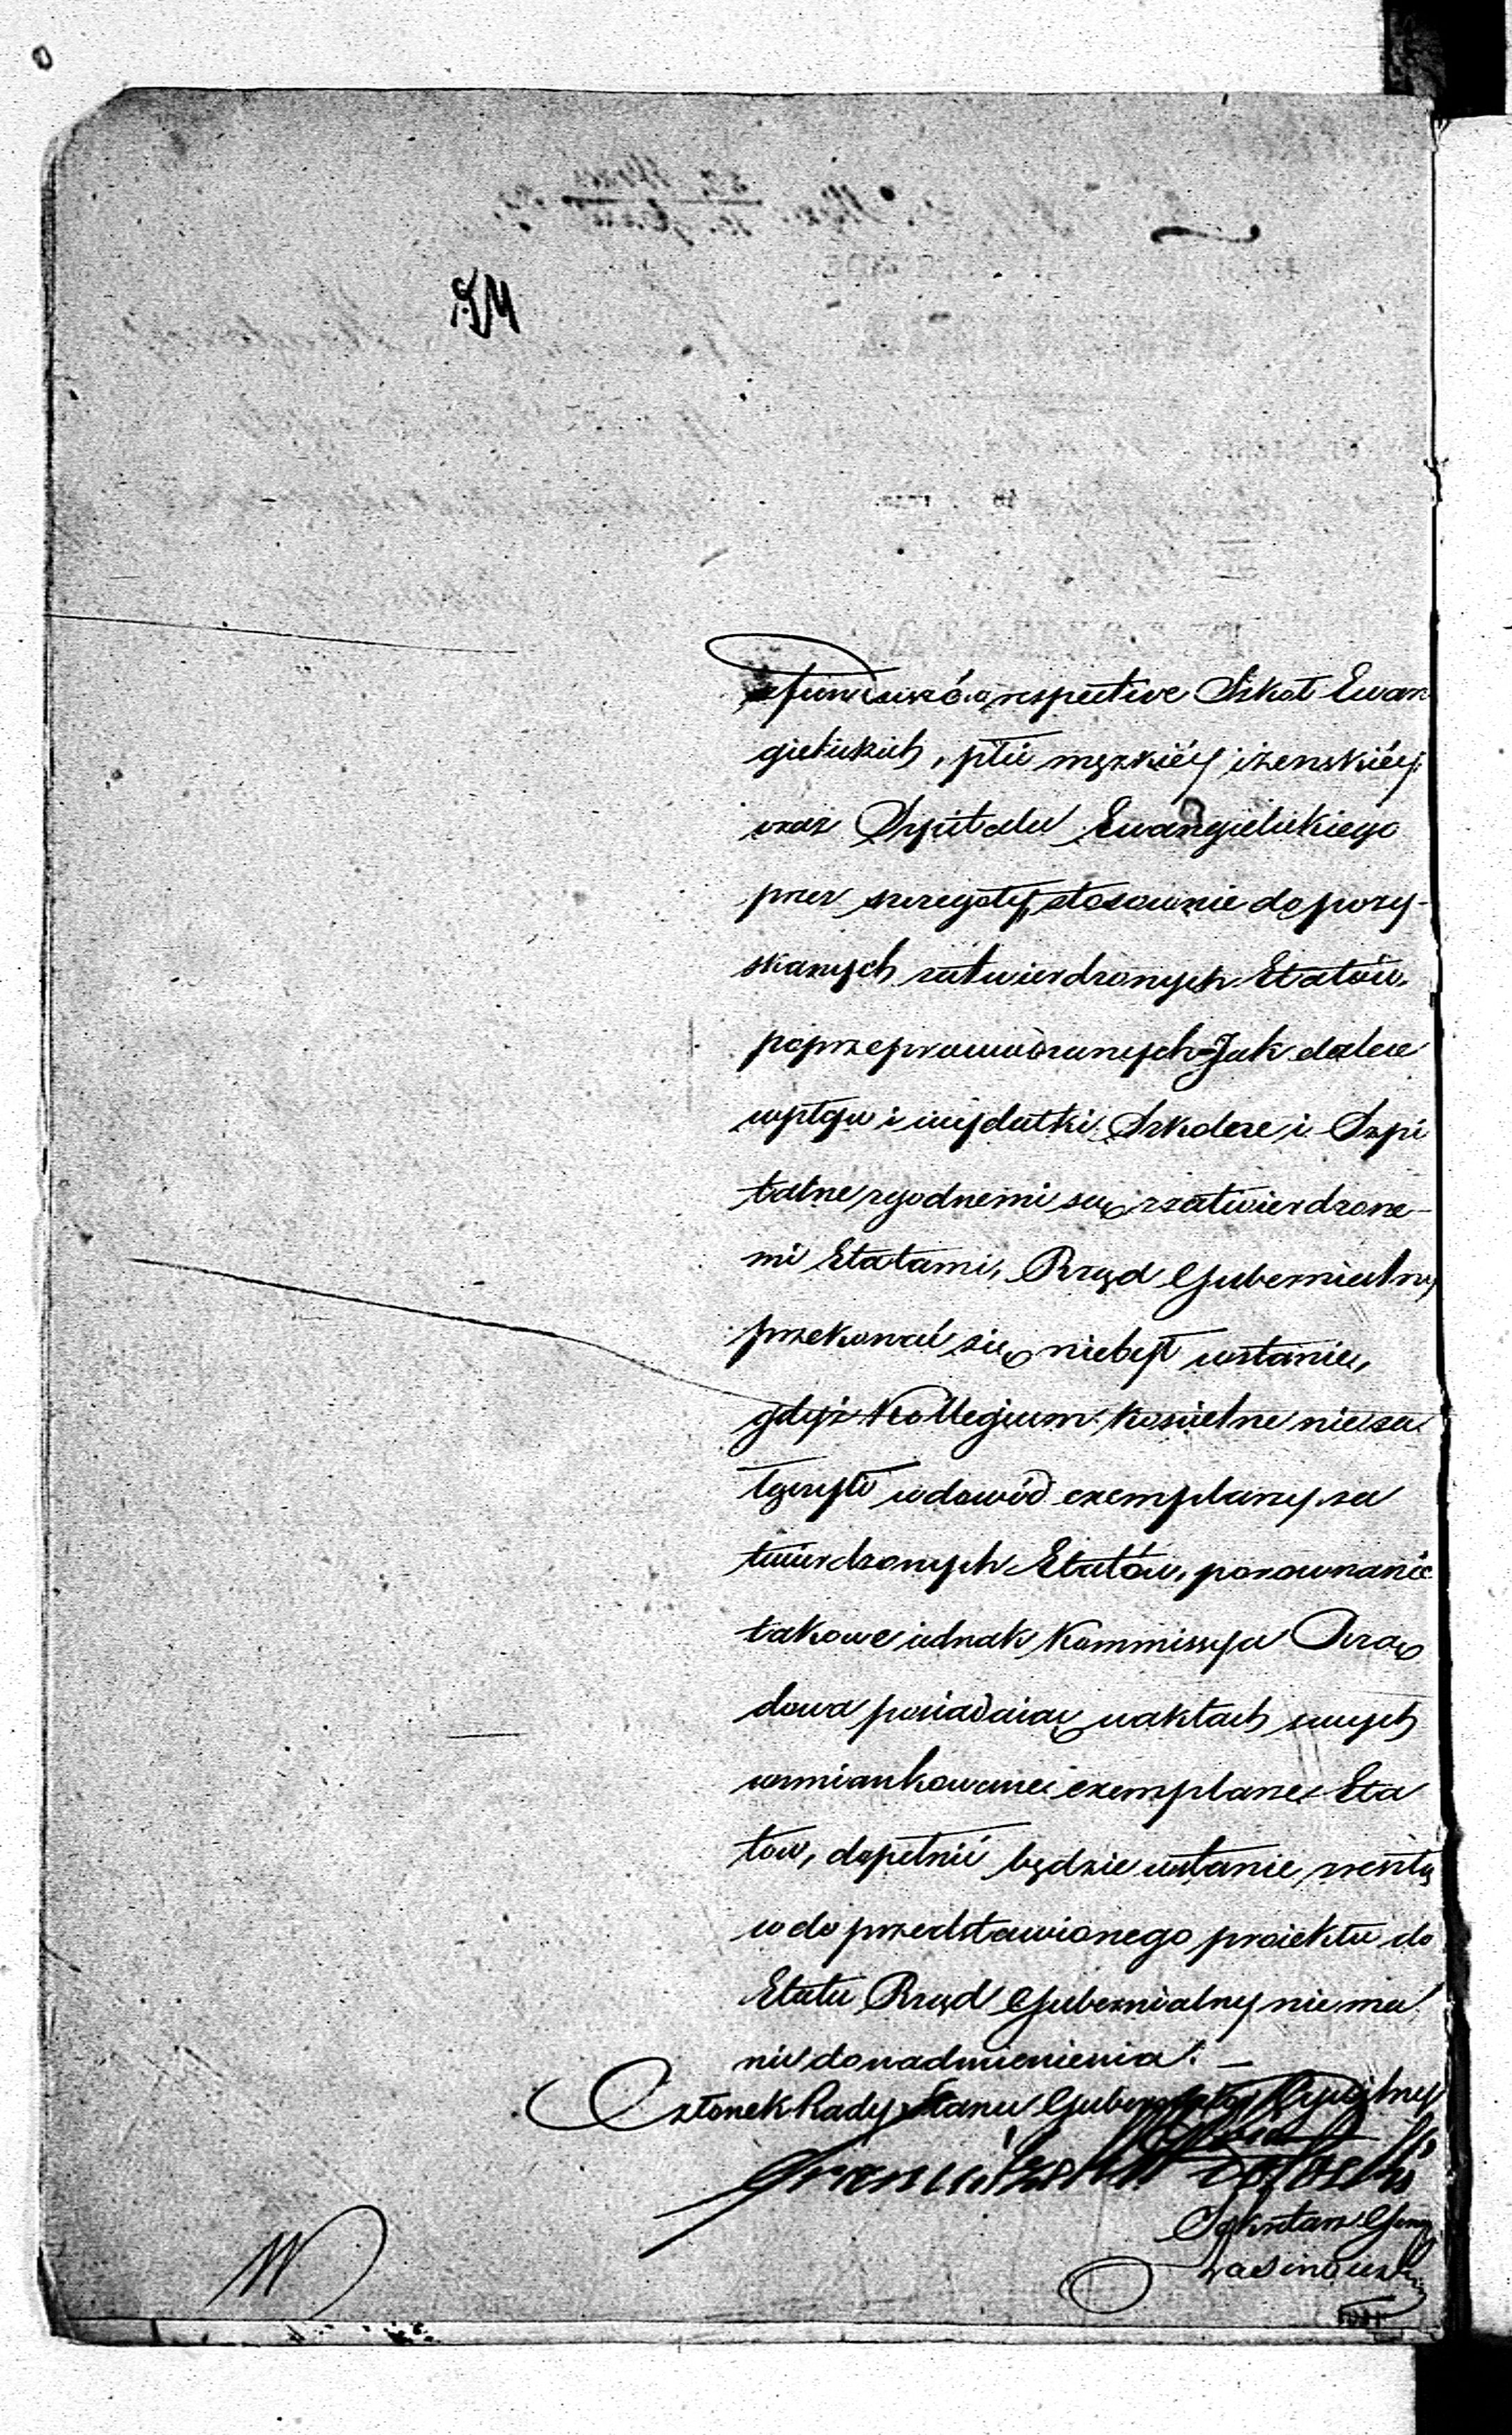 z funduszów respective Szkół Ewan
gielickich, płci męzkiéy i żenskiéy
oraz Szpitalu Ewangielickiego
przez szczegóły stosownie do pozy-
skanych zatwierdzonych Etatów
poprzeprowadzanych - Jak dalece
wpływ i wydatki Szkolne i Szpi
talne zgodnemi są z zatwierdzone-
mi Etatami, Rząd Gubernialny
przekonać się niebył wstanie,
gdyż Kollegium Kościelne nieza
łączyło w dowód exemplarzy za
twierdzonych Etatów, porownanie
takowe iednak Kommissya Rzą
dowa posiadaiąc waktach swych
wzmiankowane exemplarze Eta
tow, dopełnić będzie wstanie zresztą
w do przedstawionego proiektu do
Etatu Rząd Gubernialny nie ma
nic do nadmienienia. —
Członek Rady Stanu Gubernator Cywilny
Sekretarz Gen